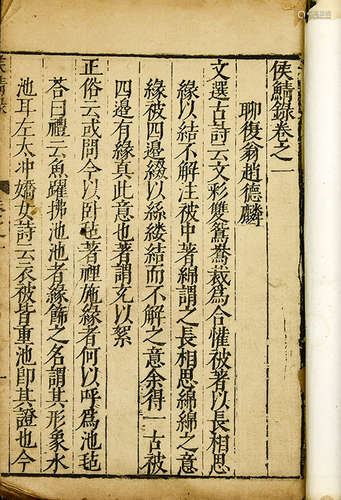 侯鯖錄卷之一
聊復翁趙德麟
文選古詩云文彩雙鴛鴦裁爲合懽被著以長相思
緣以結不解注被中著綿謂之長相思綿綿之意
緣被四邊綴以絲縷結而不解之意余得一古被
四邊有緣真此意也著謂充以絮
正俗云或問今以臥毡著裡施緣者何以呼爲池毡
荅曰禮云魚躍拂池池者緣飾之名謂其形象水
池耳左太冲嬌女詩云衣被皆重池即其證也今